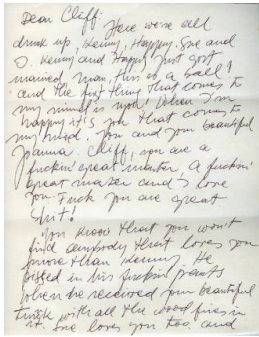 Dear Cliff:
Here we're all
drunk up, Kenny, Happy, Sue and
I. Kenny and Happy just got
married, man, this is a ball!
and the first thing that comes to
my mind is you! When I'm
happy it's you that comes to
my mind. You and your beautiful
Joanna. Cliff, you are a
fuckin' great master, A fuckin'
great and I love
you. Fuck you are great
shit!
You know that you won't
find anybody that loves you
more than Kenny. He
pissed in his fuckin' pants
when he received your beautiful
trunk with all the wood fixes in
it. Sue loves you too, and